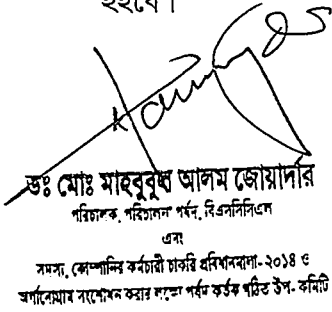 হইবে।
ডঃ মোঃ মাহবুবুল আলম জোয়ার্দার
পরিচালক, পরিচালনা পর্ষদ, বিএসসিসিএল
এবং
সদস্য, কোম্পানির কর্মচারী চাকরি প্রবিধানমালা-২০১৪ ও
অর্গানোগ্রাম সংশোধন করার লক্ষ্যে পর্ষদ কর্তৃক গঠিত উপ- কমিটি